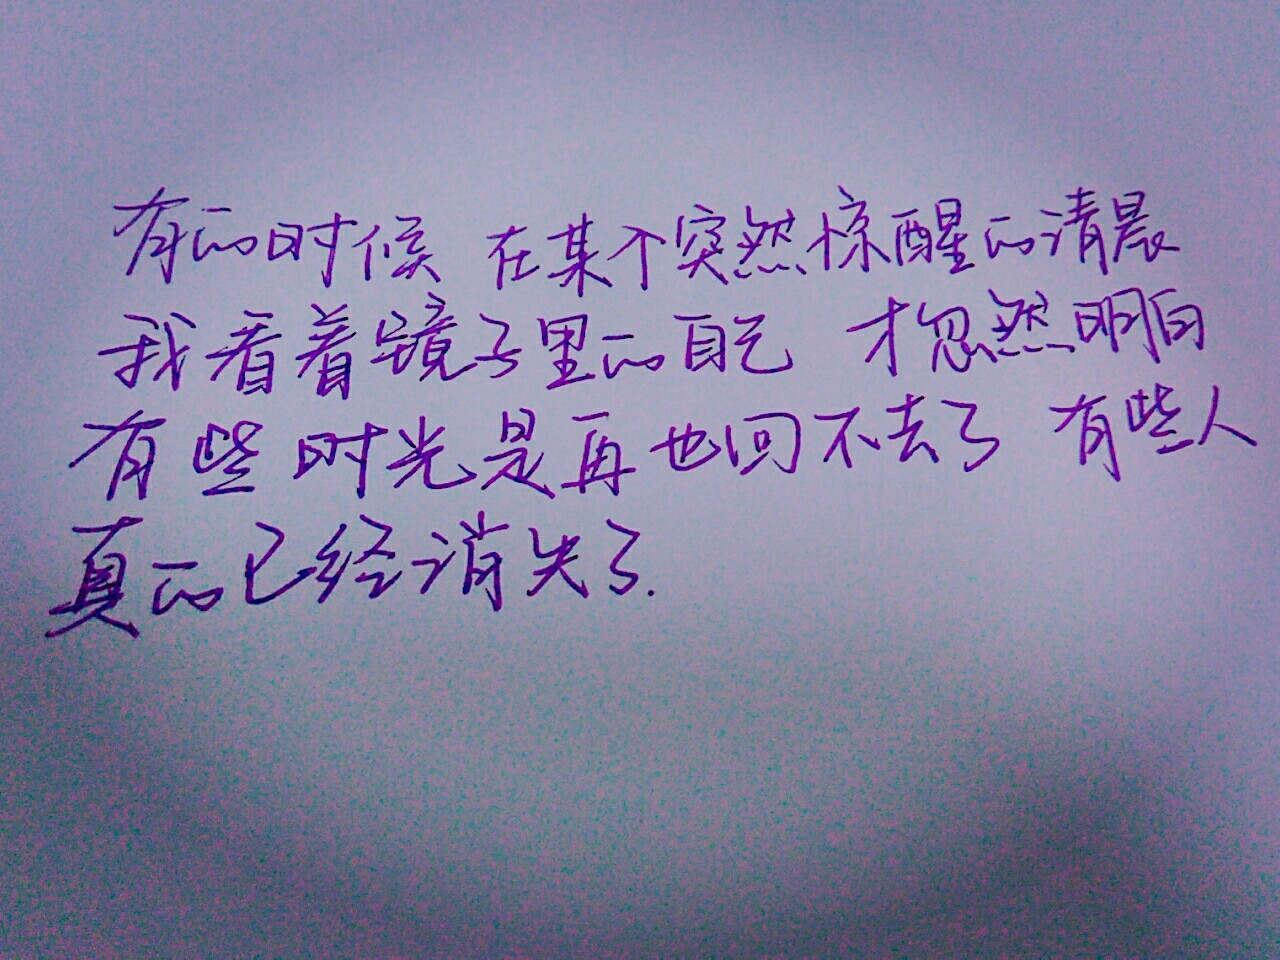 有的时候 在某个突然惊醒的清晨
我看着镜子里的自己 才忽然明白
有些时光是再也回不去了 有些人
真的已经消失了.